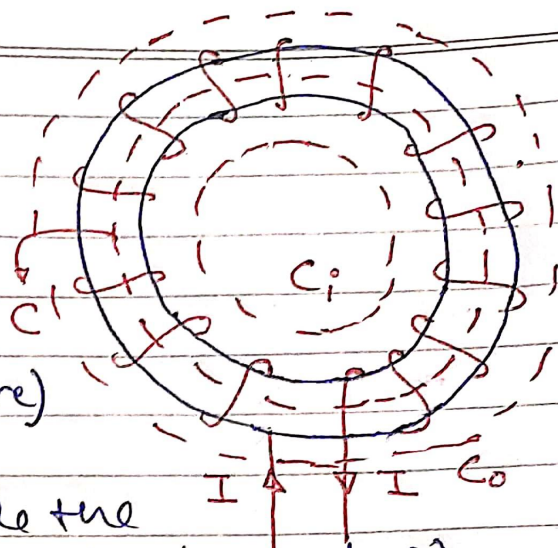 Ci
C'
re)
I I Co
le the